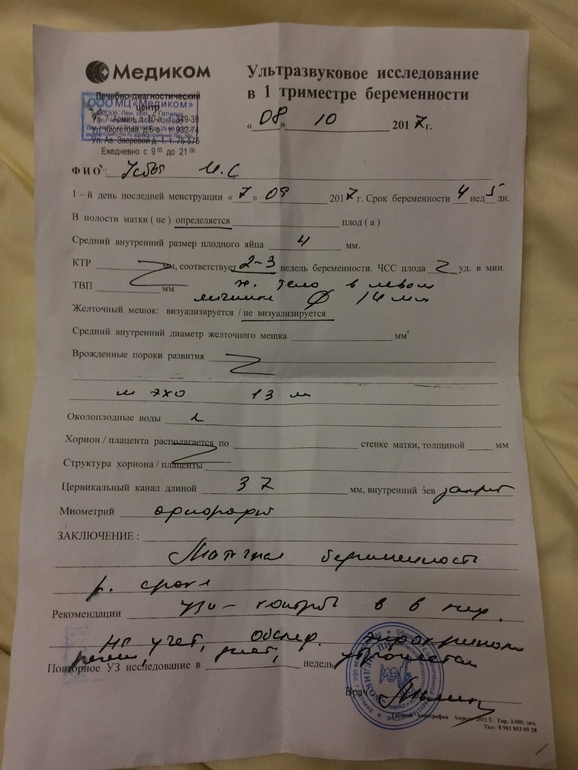 Медиком
Ультразвуковое исследование
в 1 триместре беременности
« 08 » 10 2017 г.
Лечебно-диагностический
центр
ООО МЦ «Медиком»
Ежедневно с 9 00 до 21 00
ФИО И.С
1 – й день последней менструации « 7 » 09 2017 г. Срок беременности 4 нед 5 дн.
В полости матки ( не ) определяется плод ( а )
Средний внутренний размер плодного яйца 4 мм.
КТР мм, соответствует 2-3 недель беременности. ЧСС плода уд. в мин.
ТВП мм ж. тело в левом
яичнике ∅ 14 мм
Желточный мешок: визуализируется / не визуализируется
Средний внутренний диаметр желточного мешка мм
Врожденные пороки развития
м эхо 13 м
Околоплодные воды
Хорион / плацента располагается по стенке матки, толщиной мм
Структура хориона / плаценты
Цервикальный канал длиной 37 мм, внутренний зев закрыт
Миометрий
ЗАКЛЮЧЕНИЕ :
Маточная беременность
р. срока
Рекомендации узи – контроль в 6 нед.
учет, обслед.
Повторное УЗ исследование в недель
Врач
Тел: 8 981 853 05 28